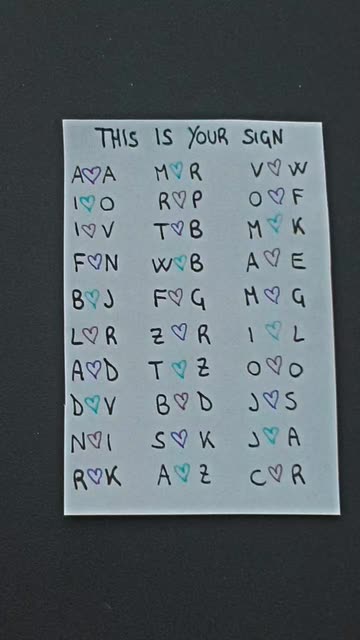 THIS IS YOUR SIGN
A♡A M♡R V♡W
I♡O R♡P O♡F
I♡V T♡B M♡K
F♡N W♡B A♡E
B♡J F♡G M♡G
L♡R Z♡R I♡L
A♡D T♡Z O♡O
D♡V B♡D J♡S
N♡I S♡K J♡A
R♡K A♡Z C♡R